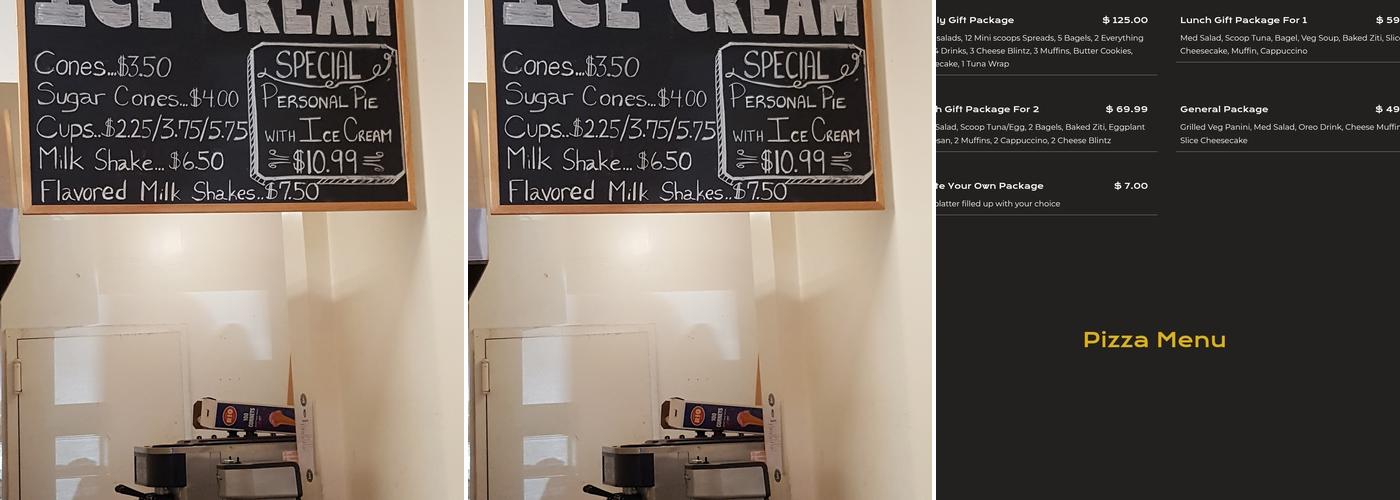 ICE CREAM
Cones...$3.50
Sugar Cones...$4.00
Cups..$2.25/3.75/5.75
Milk Shake... $6.50
Flavored Milk Shakes..$7.50
SPECIAL
PERSONAL PIE
WITH ICE CREAM
$10.99
RIO
100
ICE CREAM
Cones...$3.50
Sugar Cones...$4.00
Cups..$2.25/3.75/5.75
Milk Shake... $6.50
Flavored Milk Shakes..$7.50
SPECIAL
PERSONAL PIE
WITH ICE CREAM
$10.99
RIO
100
Gift Package $ 125.00
salads, 12 Mini scoops Spreads, 5 Bagels, 2 Everything
Drinks, 3 Cheese Blintz, 3 Muffins, Butter Cookies,
1 Tuna Wrap
Gift Package For 2 $ 69.99
Salad, Scoop Tuna/Egg, 2 Bagels, Baked Ziti, Eggplant
2 Muffins, 2 Cappuccino, 2 Cheese Blintz
Your Own Package $ 7.00
platter filled up with your choice
Lunch Gift Package For 1 $ 59
Med Salad, Scoop Tuna, Bagel, Veg Soup, Baked Ziti,
Cheesecake, Muffin, Cappuccino
General Package $ 49
Grilled Veg Panini, Med Salad, Oreo Drink, Cheese
Slice Cheesecake
Pizza Menu